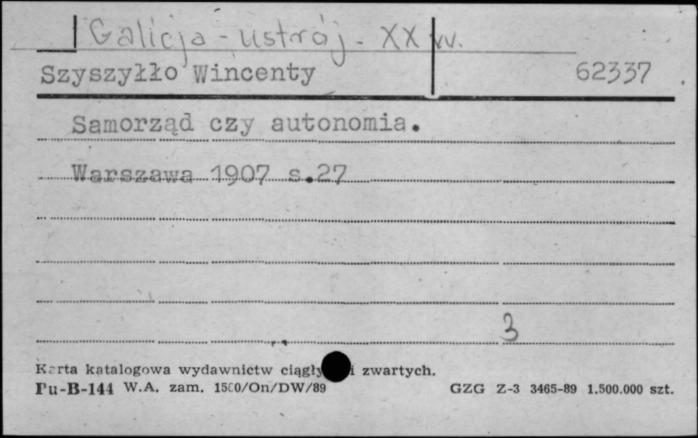 Galicja - ustrój - XX w.
Szyszyłło Wincenty 62337
Samorząd czy autonomia.
Warszawa 1907 s.27
3
Karta katalogowa wydawnictw i zwartych.
Pu-B-144 W.A. zam. 1500/On/DW/89 GZG Z-3 3465-89 1.500.000 szt.